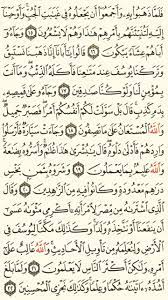 فَلَمَّا ذَهَبُوا۟ بِهِۦ وَأَجْمَعُوٓا۟ أَن يَجْعَلُوهُ فِى غَيَـٰبَتِ ٱلْجُبِّ ۚ وَأَوْحَيْنَآ
إِلَيْهِ لَتُنَبِّئَنَّهُم بِأَمْرِهِمْ هَـٰذَا وَهُمْ لَا يَشْعُرُونَ ١٥ وَجَآءُوٓ
أَبَاهُمْ عِشَآءً يَبْكُونَ ١٦ قَالُوا۟ يَـٰٓأَبَانَآ إِنَّا ذَهَبْنَا نَسْتَبِقُ
وَتَرَكْنَا يُوسُفَ عِندَ مَتَـٰعِنَا فَأَكَلَهُ ٱلذِّئْبُ ۖ وَمَآ أَنتَ
بِمُؤْمِنٍ لَّنَا وَلَوْ كُنَّا صَـٰدِقِينَ ١٧ وَجَآءُو عَلَىٰ قَمِيصِهِۦ
بِدَمٍ كَذِبٍ ۚ قَالَ بَلْ سَوَّلَتْ لَكُمْ أَنفُسُكُمْ أَمْرًا ۖ فَصَبْرٌ جَمِيلٌ ۖ
وَٱللَّهُ ٱلْمُسْتَعَانُ عَلَىٰ مَا تَصِفُونَ ١٨ وَجَآءَتْ سَيَّارَةٌ فَأَرْسَلُوا۟
وَارِدَهُمْ فَأَدْلَىٰ دَلْوَهُۥ ۖ قَالَ يَـٰبُشْرَىٰ هَـٰذَا غُلَـٰمٌ ۚ وَأَسَرُّوهُ بِضَـٰعَةً ۚ
وَٱللَّهُ عَلِيمٌۢ بِمَا يَعْمَلُونَ ١٩ وَشَرَوْهُ بِثَمَنٍۭ بَخْسٍ
دَرَٰهِمَ مَعْدُودَةٍ وَكَانُوا۟ فِيهِ مِنَ ٱلزَّٰهِدِينَ ٢٠ وَقَالَ
ٱلَّذِى ٱشْتَرَىٰهُ مِن مِّصْرَ لِٱمْرَأَتِهِۦٓ أَكْرِمِى مَثْوَىٰهُ عَسَىٰٓ
أَن يَنفَعَنَآ أَوْ نَتَّخِذَهُۥ وَلَدًا ۚ وَكَذَٰلِكَ مَكَّنَّا لِيُوسُفَ
فِى ٱلْأَرْضِ وَلِنُعَلِّمَهُۥ مِن تَأْوِيلِ ٱلْأَحَادِيثِ ۚ وَٱللَّهُ غَالِبٌ
عَلَىٰٓ أَمْرِهِۦ وَلَـٰكِنَّ أَكْثَرَ ٱلنَّاسِ لَا يَعْلَمُونَ ٢١ وَلَمَّا بَلَغَ
أَشُدَّهُۥٓ ءَاتَيْنَـٰهُ حُكْمًا وَعِلْمًا ۚ وَكَذَٰلِكَ نَجْزِى ٱلْمُحْسِنِينَ ٢٢